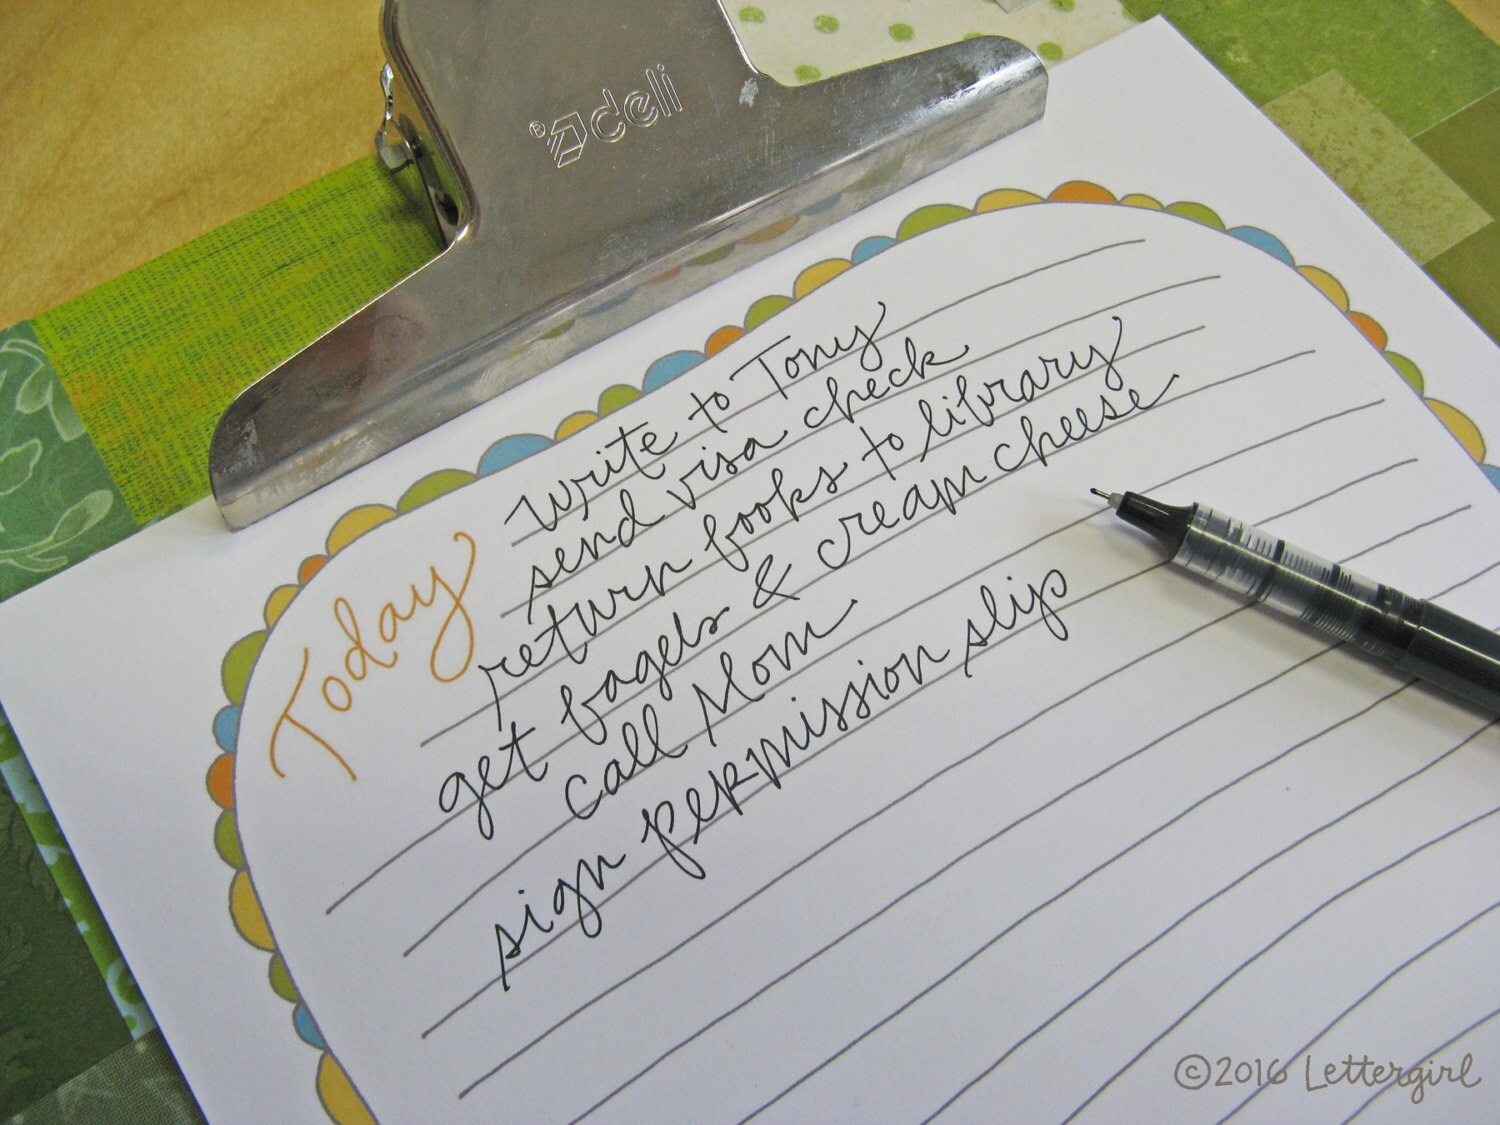 ® deli
Today
write to Tony
send visa check
return books to library
get bagels & cream cheese
call Mom
sign permission slip
©2016 Lettergirl